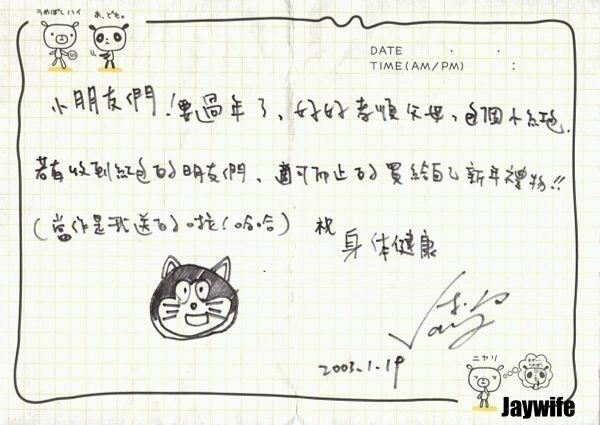 うめぼしハイ
あ、ども。
DATE . .
TIME(AM/PM) :
小朋友們！要過年了、好好孝順父母、包個小紅包.
若有收到紅包的朋友們、適可而止的買給自己新年禮物!!
(當作是我送的啦!哈哈) 祝
身体健康
2003.1.19
ニヤリ
Jaywife